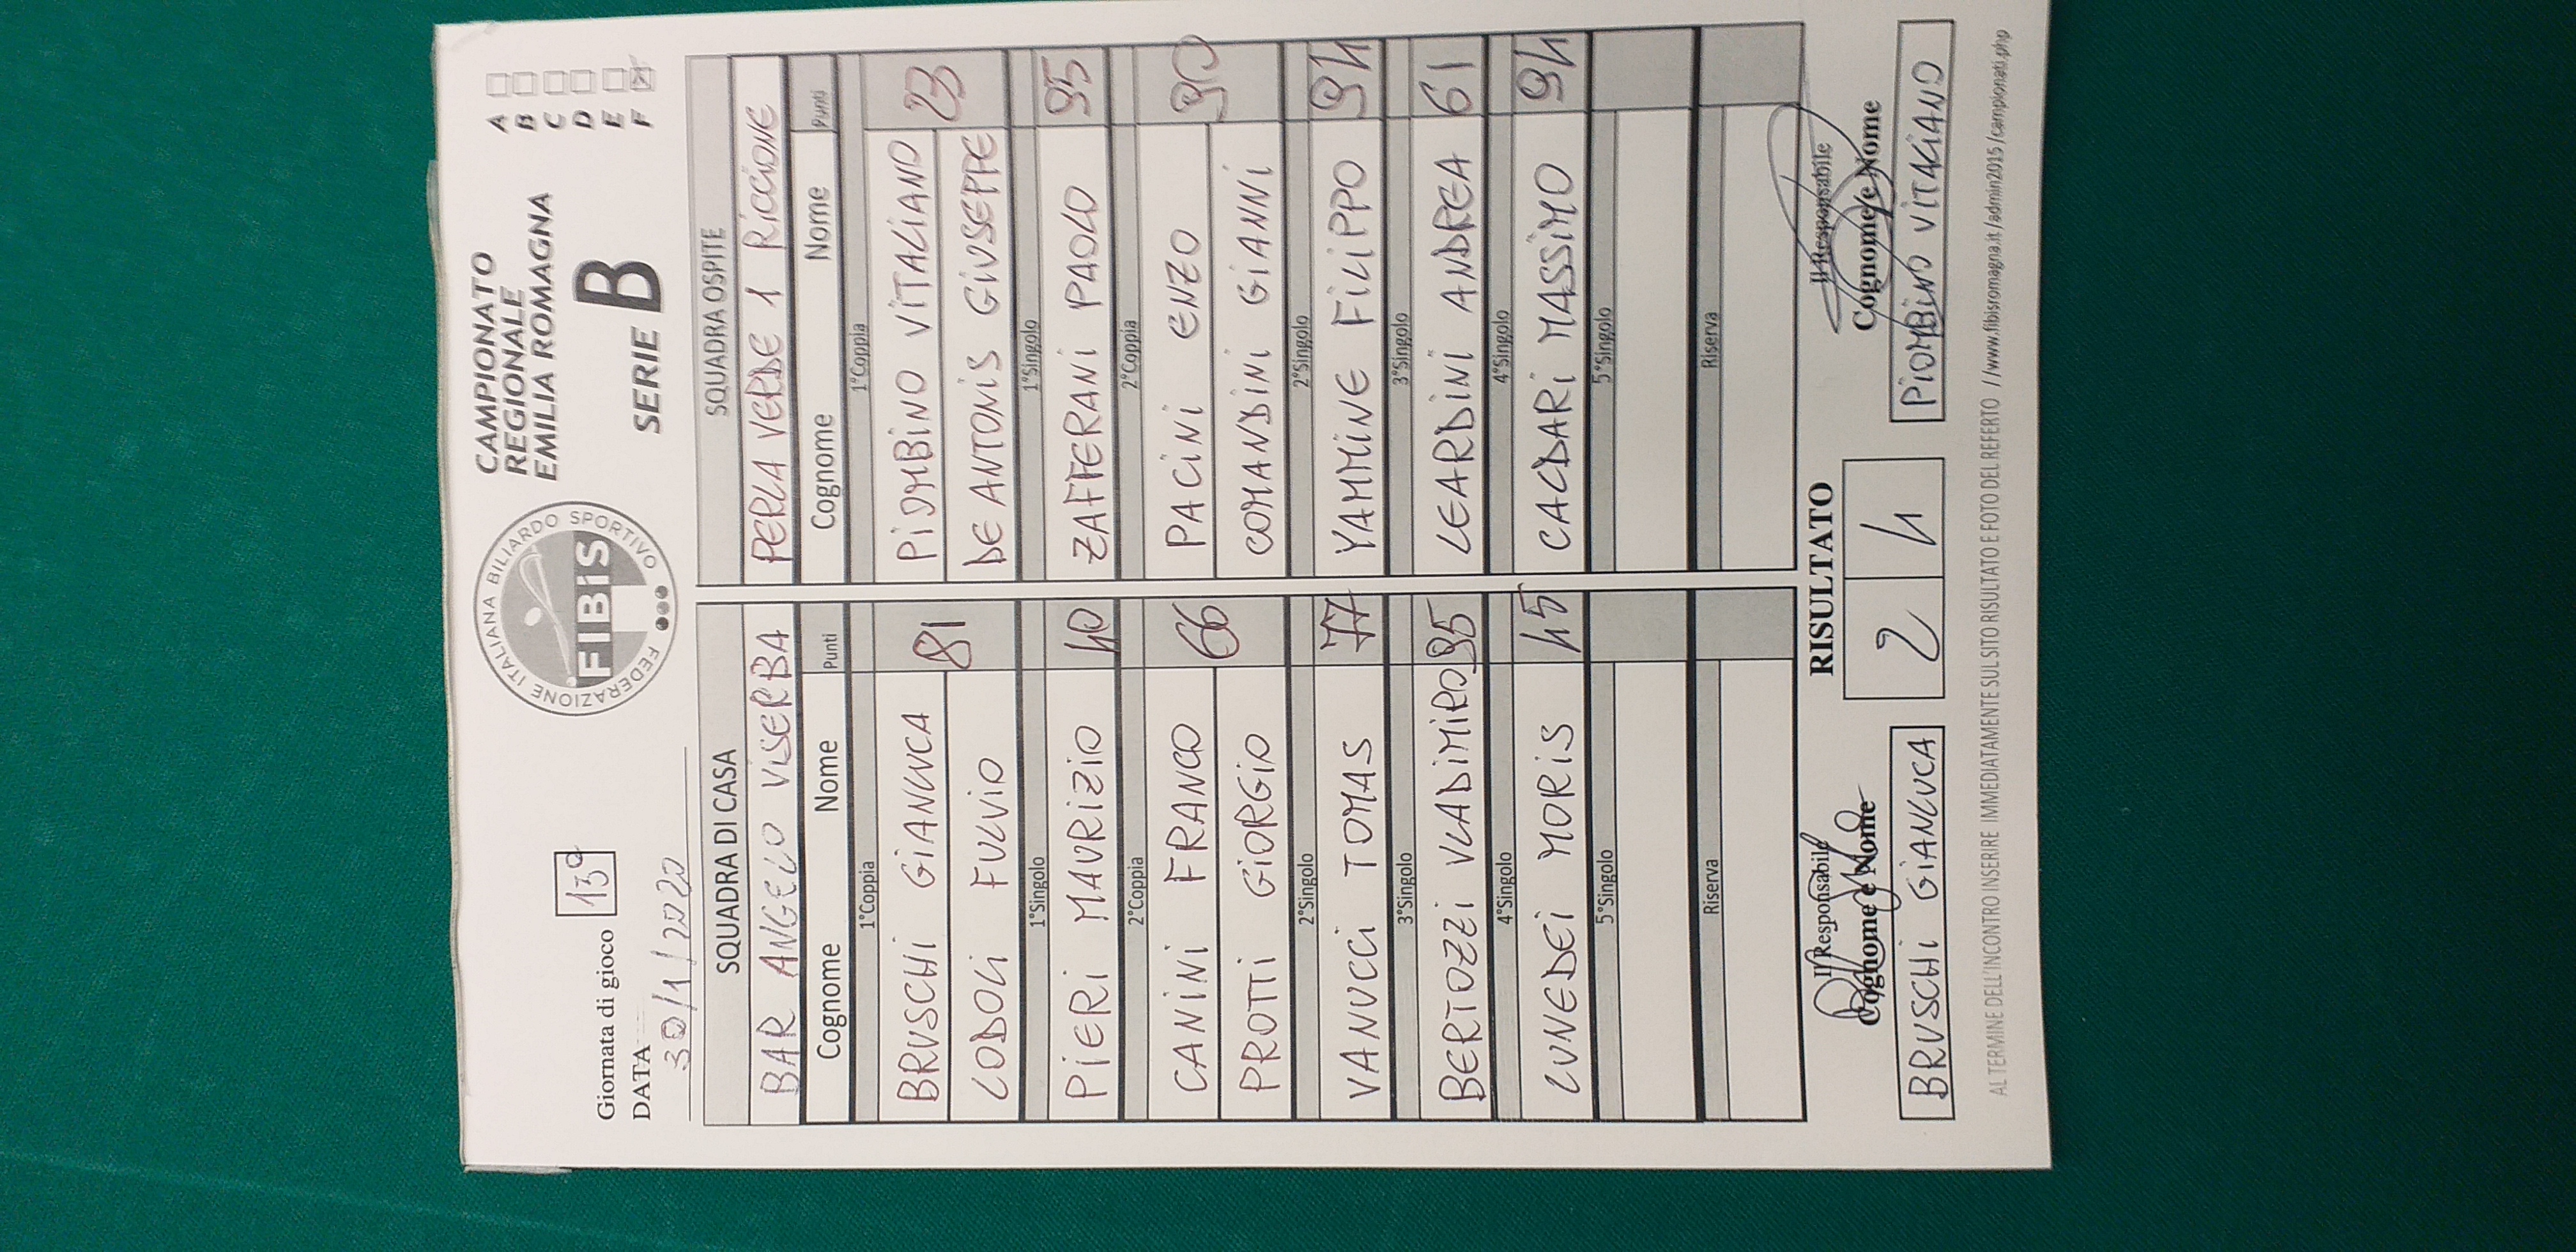 Giornata di gioco 13°
DATA
30/1/2020
FEDERAZIONE ITALIANA BILIARDO SPORTIVO
FIBiS
CAMPIONATO
REGIONALE
EMILIA ROMAGNA
SERIE B
A
B
C
D
E
F
SQUADRA DI CASA SQUADRA OSPITE
BAR ANGELO VISERBA PERLA VERDE 1 RICCIONE
Cognome Nome Punti Cognome Nome Punti
1°Coppia 1°Coppia
BRUSCHI GIANLUCA 81 PIOMBINO VITALIANO 23
LODOLI FULVIO DE ANTONIS GIUSEPPE
1°Singolo 1°Singolo
PIERI MAURIZIO 40 ZAFFERANI PAOLO 95
2°Coppia 2°Coppia
CANINI FRANCO 66 PACINI ENZO 90
PROTTI GIORGIO COMANDINI GIANNI
2°Singolo 2°Singolo
VANUCCI TOMAS 77 YAMMINE FILIPPO 94
3°Singolo 3°Singolo
BERTOZZI VLADIMIRO 95 LEARDINI ANDREA 61
4°Singolo 4°Singolo
LUNEDEI MORIS 45 CALDARI MASSIMO 94
5°Singolo 5°Singolo
Riserva Riserva
Il Responsabile RISULTATO Il Responsabile
Cognome e Nome 2 4 Cognome e Nome
BRUSCHI GIANLUCA PIOMBINO VITALIANO
AL TERMINE DELL'INCONTRO INSERIRE IMMEDIATAMENTE SUL SITO RISULTATO E FOTO DEL REFERTO //www.fibisromagna.it/admin2015/campionati.php